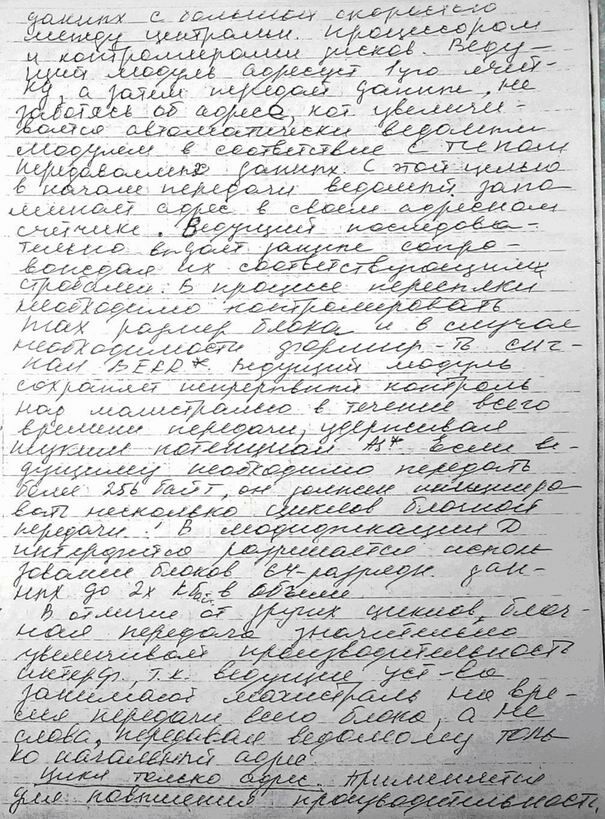 данных с большой скоростью
между центральн. процессором
и контроллерами дисков. Веду-
щий модуль адресует 1ую ячей-
ку, а затем передает данные, не
заботясь об адресе, кот увеличи-
вается автоматически ведомым
модулем в соответствие с типом
передаваемых данных. С этой целью
в начале передачи ведомый запо
минает адрес в своем адресном
счётчике. Ведущий последова-
тельно выдает данные сопро-
вождая их соответствующими
стробами. В процессе пересылки
необходимо контролировать
max размер блока и в случае
необходимости формир-ть сиг-
нал BERR* Ведущий модуль
сохраняет непрерывный контроль
над магистралью в течение всего
времени передачи, удерживая
низкий потенциал AS* Если ве-
дущему необходимо передать
более 256 байт, он должен иницииро-
вать несколько циклов блочной
передачи. В модификации D
интерфейса разрешается исполь
зование блоков 64-разрядн. дан-
ных до 2х Кбайт в объеме
В отличие от других циклов, блоч-
ная передача значительно
увеличивает производительность
интерф., т.к. ведущие уст-ва
занимают магистраль на вре-
мя передачи всего блока, а не
слова, передавая ведомому толь
ко начальный адрес
Цикл только адрес. Применяется
для повышения производительности,